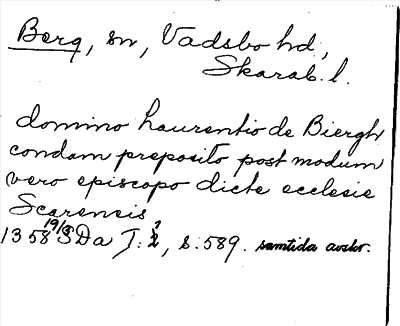 Berg, sn, Vadsbo hd,
Skarab. l.
domino Laurentio de Biergh
condam preposito post modum
vero episcopo dicte ecclesie
Scarensis
1358 19/8 SDa J: 2, s. 589. samtida avskr.